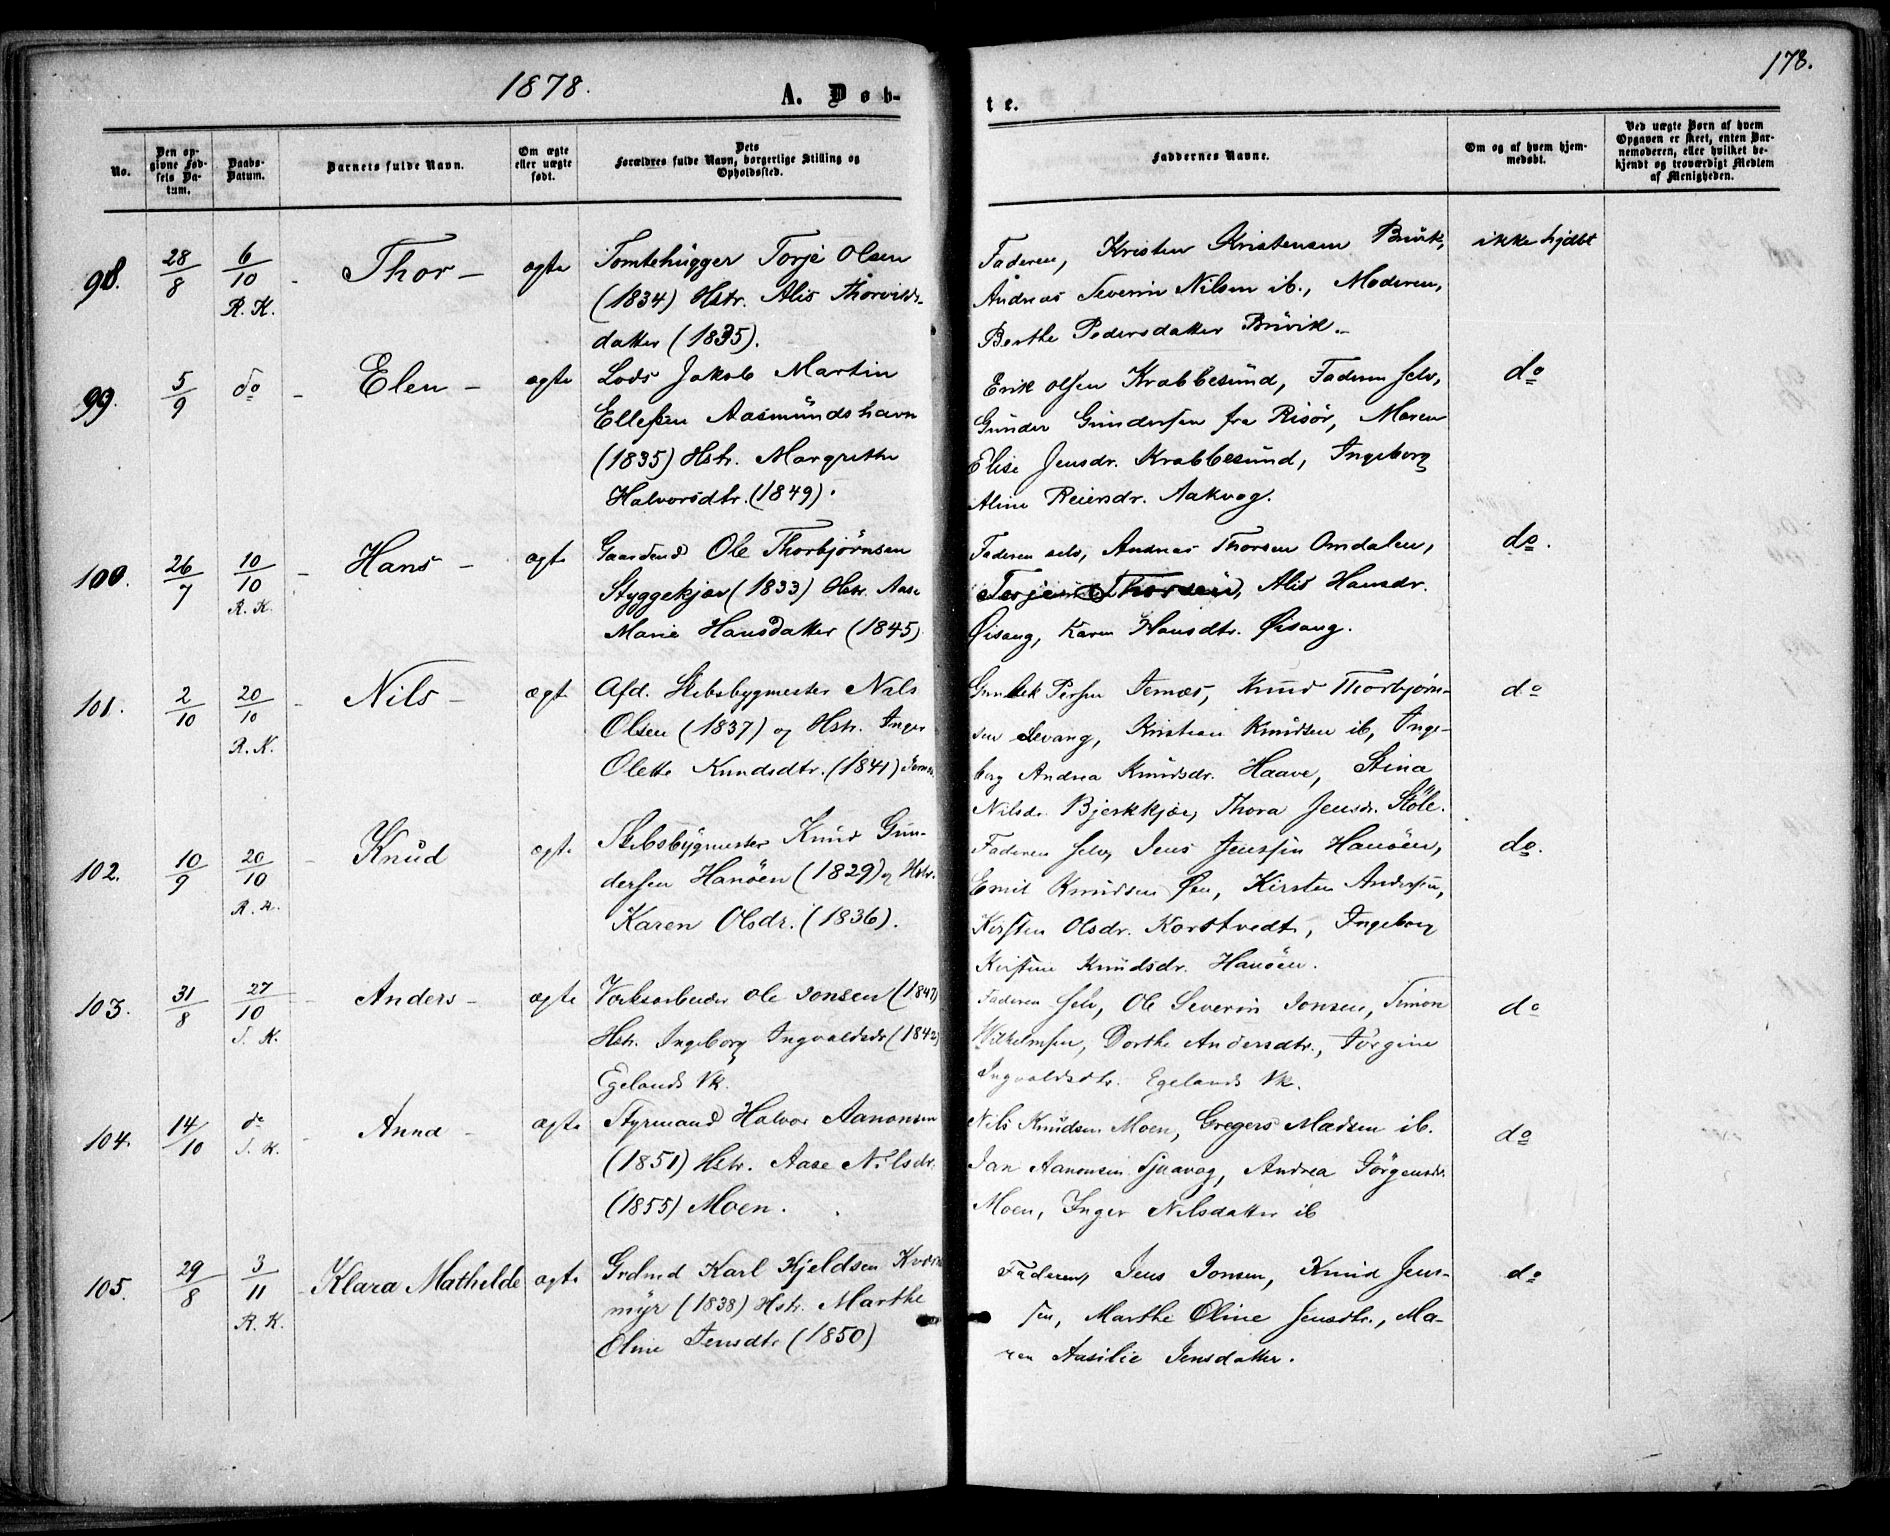 1878.
178.
A. Døb-
te.
No.
Den op-
givne Fød-
sels Da-
tum.
Daabs-
Datum.
Barnets fulde Navn.
Om ægte
eller uægte
født.
Dets
Forældres fulde Navn, borgerlige Stilling og
Opholdssted.
Faddernes Navne.
Om og af hvem hjem-
medøbt.
Ved uægte Børn af hvem
Opgaven er skeet, enten Bar-
nemoderen, eller hvilket be-
kjendt og troværdigt Medlem
af Menigheden.
98. 28/8 6/10 R. K. - Thor - ægte
Tomtehugger Torje Olsen
(1834) Hstr. Alis Thorvilds-
datter (1835).
Faderen, Kristen Kristensen Buvik,
Andreas Severin Nilsen ib., Moderen,
Berthe Pedersdatter Buvik.
ikke hjdbt
99. 5/9 do - Elen - ægte
Lods Jakob Martin
Ellefsen Aasmundshavn
(1835) Hstr. Margrethe
Halvorsdtr. (1849).
Erik Olsen Krabbesund, Faderen selv,
Gunder Gundersen fra Risör, Maren
Elise Jensdr. Krabbesund, Ingeborg
Aline Reiersdr. Aakvag.
do
100. 26/7 10/10 R. K. - Hans - ægte
Gaardmd Ole Thorbjørnsen
Styggekjær (1833) Hstr. Aase
Marie Hansdatter (1845)
Faderen selv, Andreas Thorsen Omdalen,
Terjen Thorsen, Alis Hansdr.
Øisang, Karen Hansdtr. Øisang.
do.
101. 2/10 20/10 R. K. - Nils - ægte
Afd. Skibsbygmester Nils
Olsen (1837) og Hstr. Inger
Olette Knudsdtr. (1841)
Persen Ternæs, Knud Thorbjørn-
sen Levang, Kristian Knudsen ib, Inge-
borg Andrea Knudsdr. Haave, Stina
Nilsdr. Bjerkkjær, Thora Jensdr. Støle.
do
102. 10/9 20/10 R. K. - Knud ægte
Skibsbygmester Knud Gun-
dersen Hanöen (1829) og Hstr.
Karen Olsdr. (1836).
Faderen selv, Jens Jenssen Hanöen,
Emil Knudsen Øen, Kirsten Andersen,
Kirsten Olsdr. Kortvedt, Ingeborg
Kirstine Knudsdr. Hanöen.
do.
103. 31/8 27/10 S. K. - Anders - ægte
Værksarbeider Ole Jonsen (1847)
Hstr. Ingeborg Ingvaldsdr (1842)
Egelands Vk.
Faderen selv, Ole Severin Jonsen, Simon
Wilhelmsen, Dorthe Andersdtr., Jörgine
Ingvaldsdtr. Egelands Vk.
do
104. 14/10 do S. K. - Anna - ægte
Styrmand Halvor Aanonsen
(1851) Hstr. Aase Nilsdr.
(1855) Moen.
Nils Knudsen Moen, Gregers Madsen ib.
Jan Aanonsen Sjuavag, Andrea Jörgensdr.
Moen, Inger Nilsdatter ib
do
105. 29/8 3/11 R. K. - Klara Mathilde ægte
Grdmd Karl Kjeldsen
myr (1838) Hstr. Marthe
Oline Jensdtr (1850)
Faderen, Jens Jonsen, Knud Jens-
sen, Marthe Oline Jensdtr., Ma-
ren Aasilie Jensdatter.
do